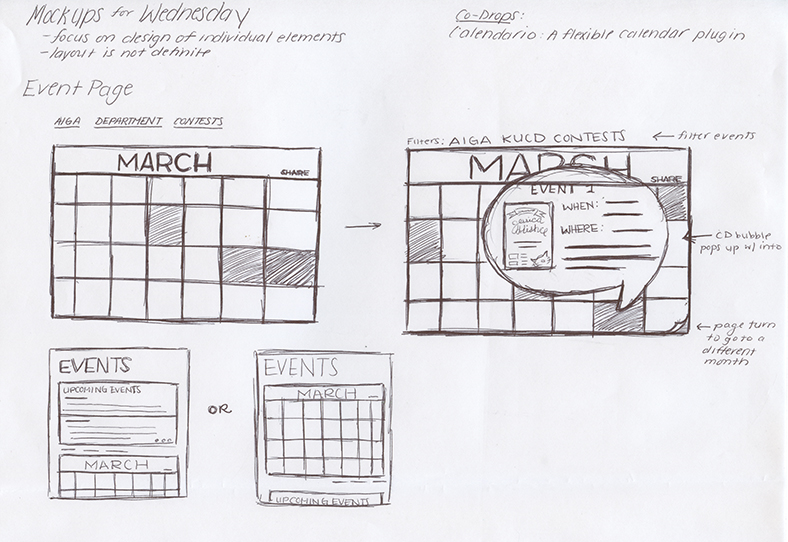 Mockups for Wednesday
- focus on design of individual elements
- layout is not definite
Co-Drops:
Calendario: A flexible calendar plugin
Event Page
AIGA DEPARTMENT CONTESTS
MARCH
SHARE
Filters: AIGA KUCD CONTESTS
← filter events
MARCH
SHARE
EVENT 1
WHEN:
WHERE:
CD bubble
pops up w/ info
page turn
to go to a
different
month
EVENTS
UPCOMING EVENTS
MARCH
OR
EVENTS
MARCH
UPCOMING EVENTS